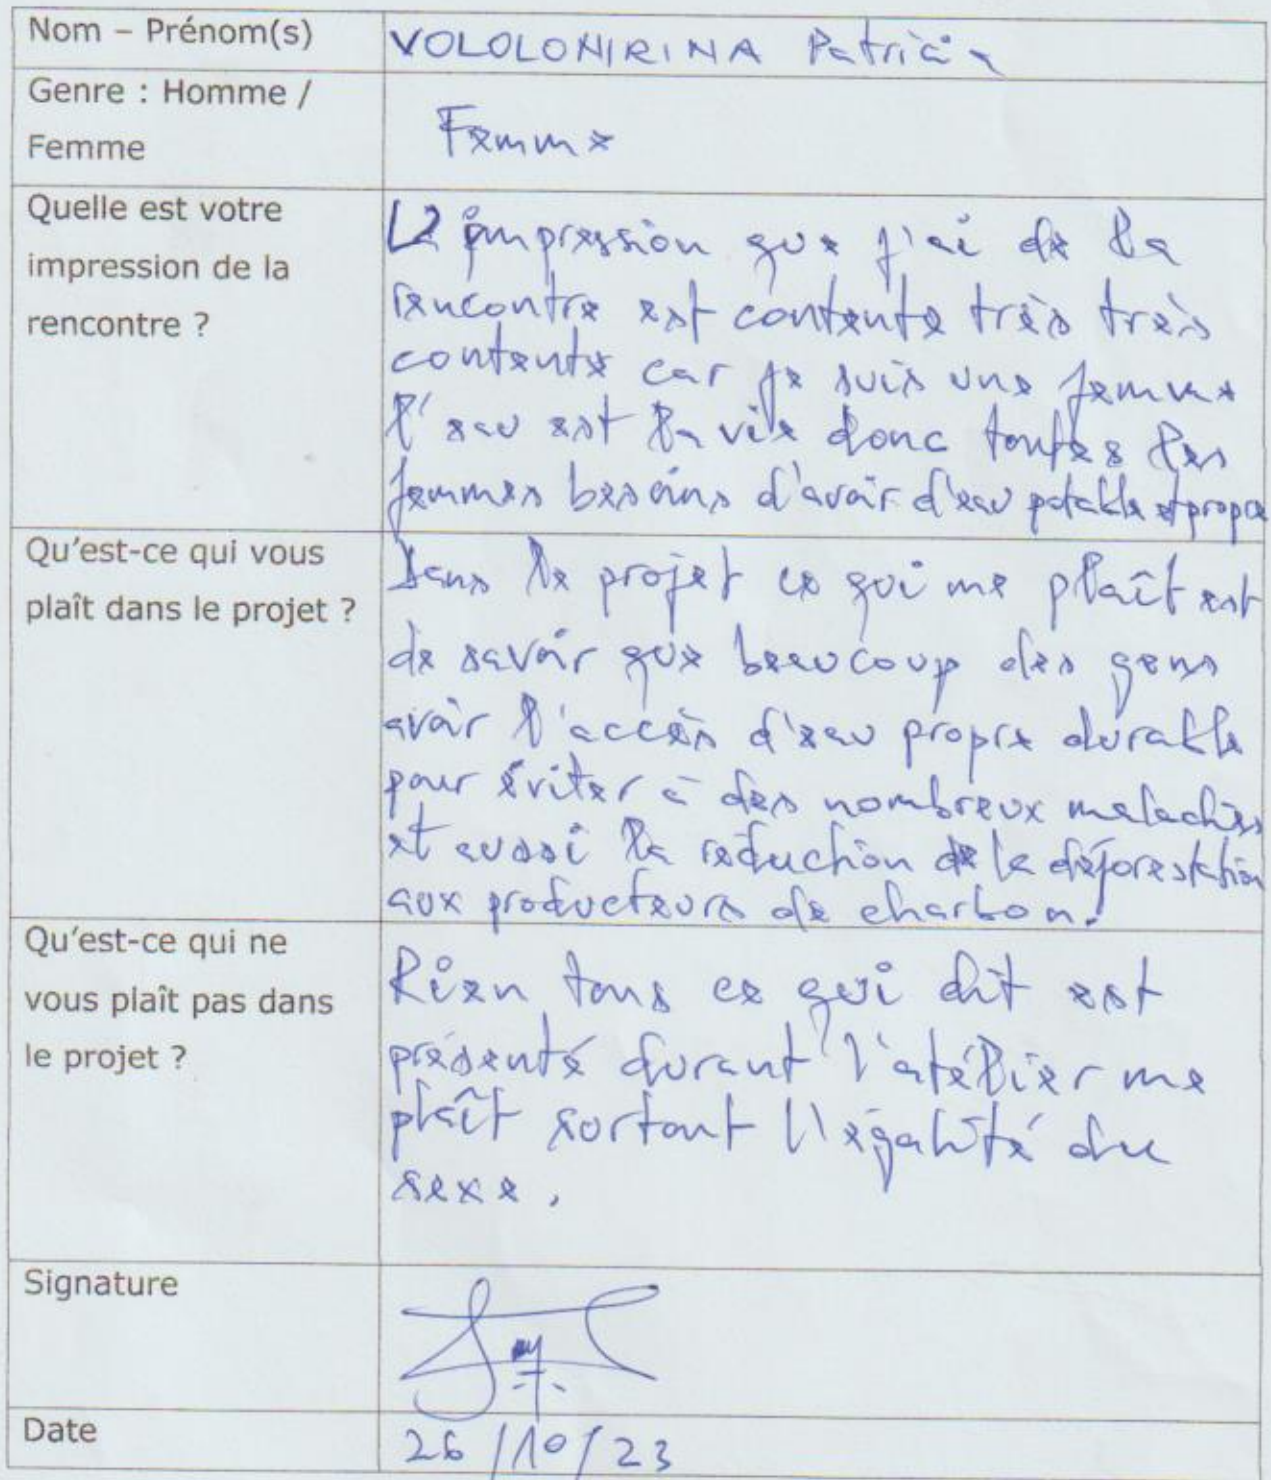 Nom – Prénom(s)
VOLOLONIRINA Patricia
Genre : Homme /
Femme
Femme
Quelle est votre
impression de la
rencontre ?
L'impression que j'ai de la
rencontre est contente très très
contente car je suis une femme
l'eau est la vie donc toutes les
femmes besoins d'avoir d'eau potable et propre
Qu'est-ce qui vous
plaît dans le projet ?
Dans le projet ce qui me plaît est
de savoir que beaucoup des gens
avoir l'accès d'eau propre durable
pour éviter à des nombreux maladies
et aussi la réduction de la déforestation
aux producteurs de charbon.
Qu'est-ce qui ne
vous plaît pas dans
le projet ?
Rien tous ce qui dit est
présenté durant l'atélier me
plaît surtout l'égalité du
sexe.
Signature
Date
26/10/23